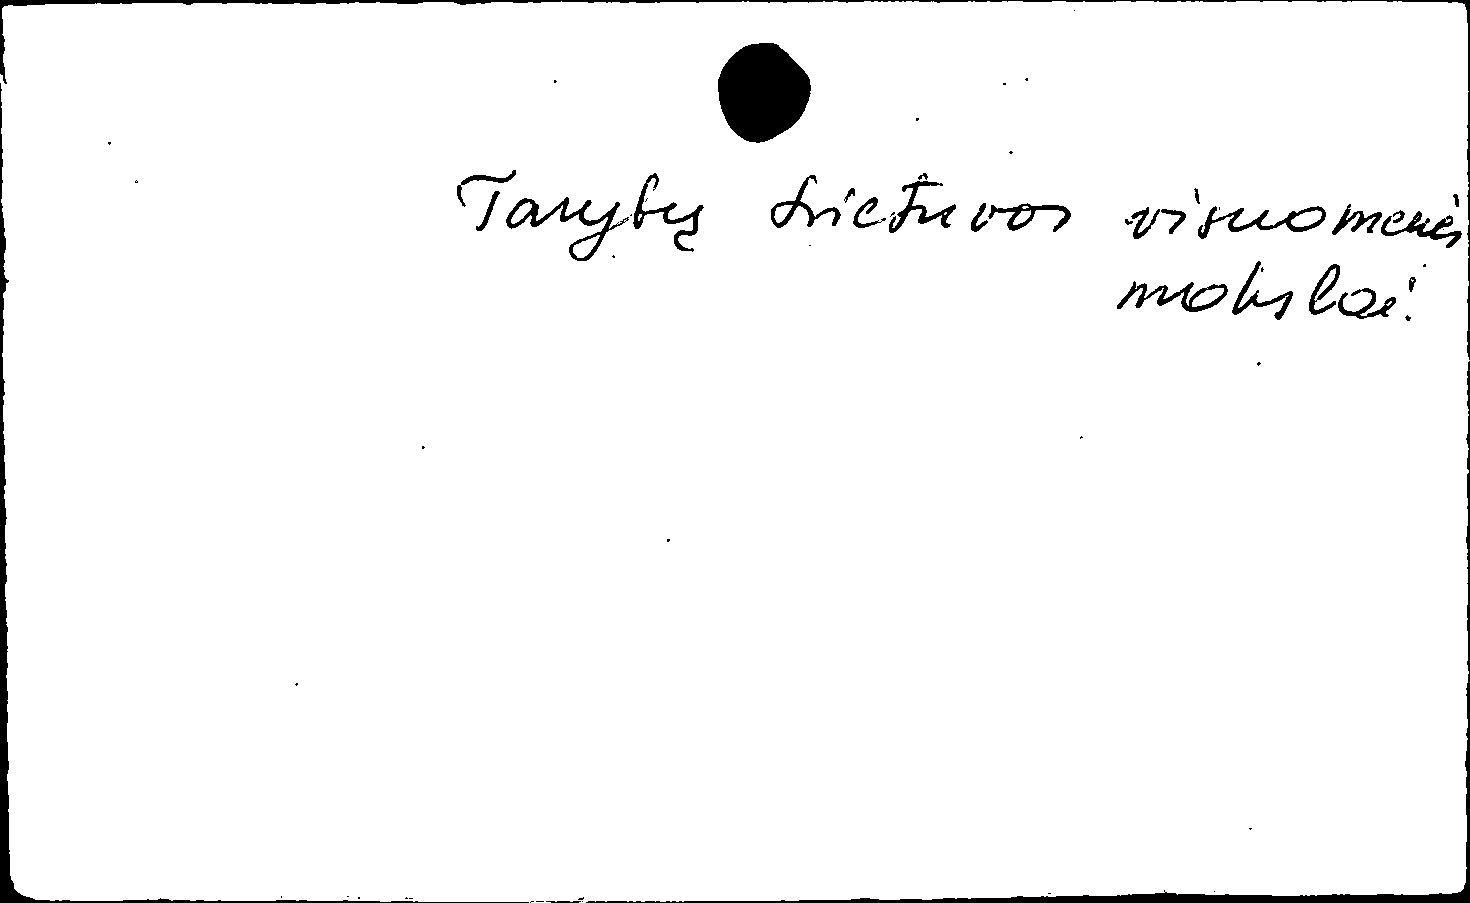 Tarybų Lietuvos visuomenės
mokslai.